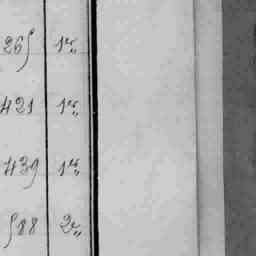 265 1 r„
421 1 r„
439 1 r„
588 2 r„